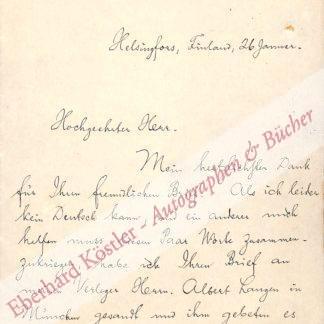 Helsingfors, Finland, 26 Januar.
Hochgeehrter Herr.
Mein herzlichster Dank
für Ihren freundlichen Brief. Als ich leider
kein Deutsch kann, und ein anderer mich
helfen muss diesen Paar Worte zusammen-
zukriegen, habe ich Ihren Brief an
meinen Verleger Herrn Albert Langen in
München gesandt und ihm gebeten es
Eberhard Köstler - Autographen & Bücher